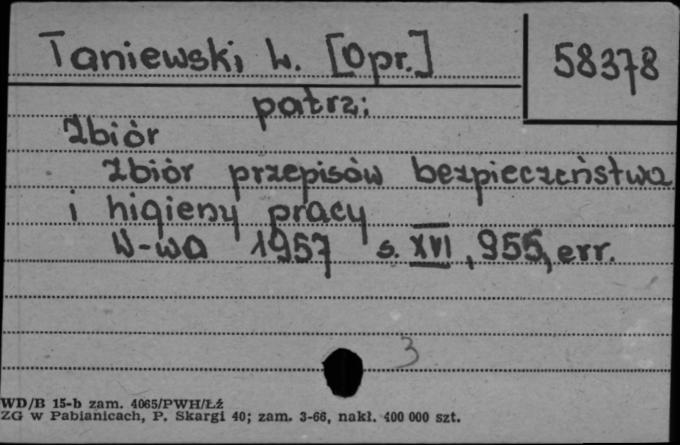 Taniewski, L. [Opr.]
58378
patrz:
Zbiór
Zbiór przepisów bezpieczeństwa
i higieny pracy
W-wa 1957 s. XVI, 955, err.
3
WD/B 15-b zam. 4065/PWH/Łż
ZG w Pabianicach, P. Skargi 40; zam. 3-66, nakł. 400 000 szt.